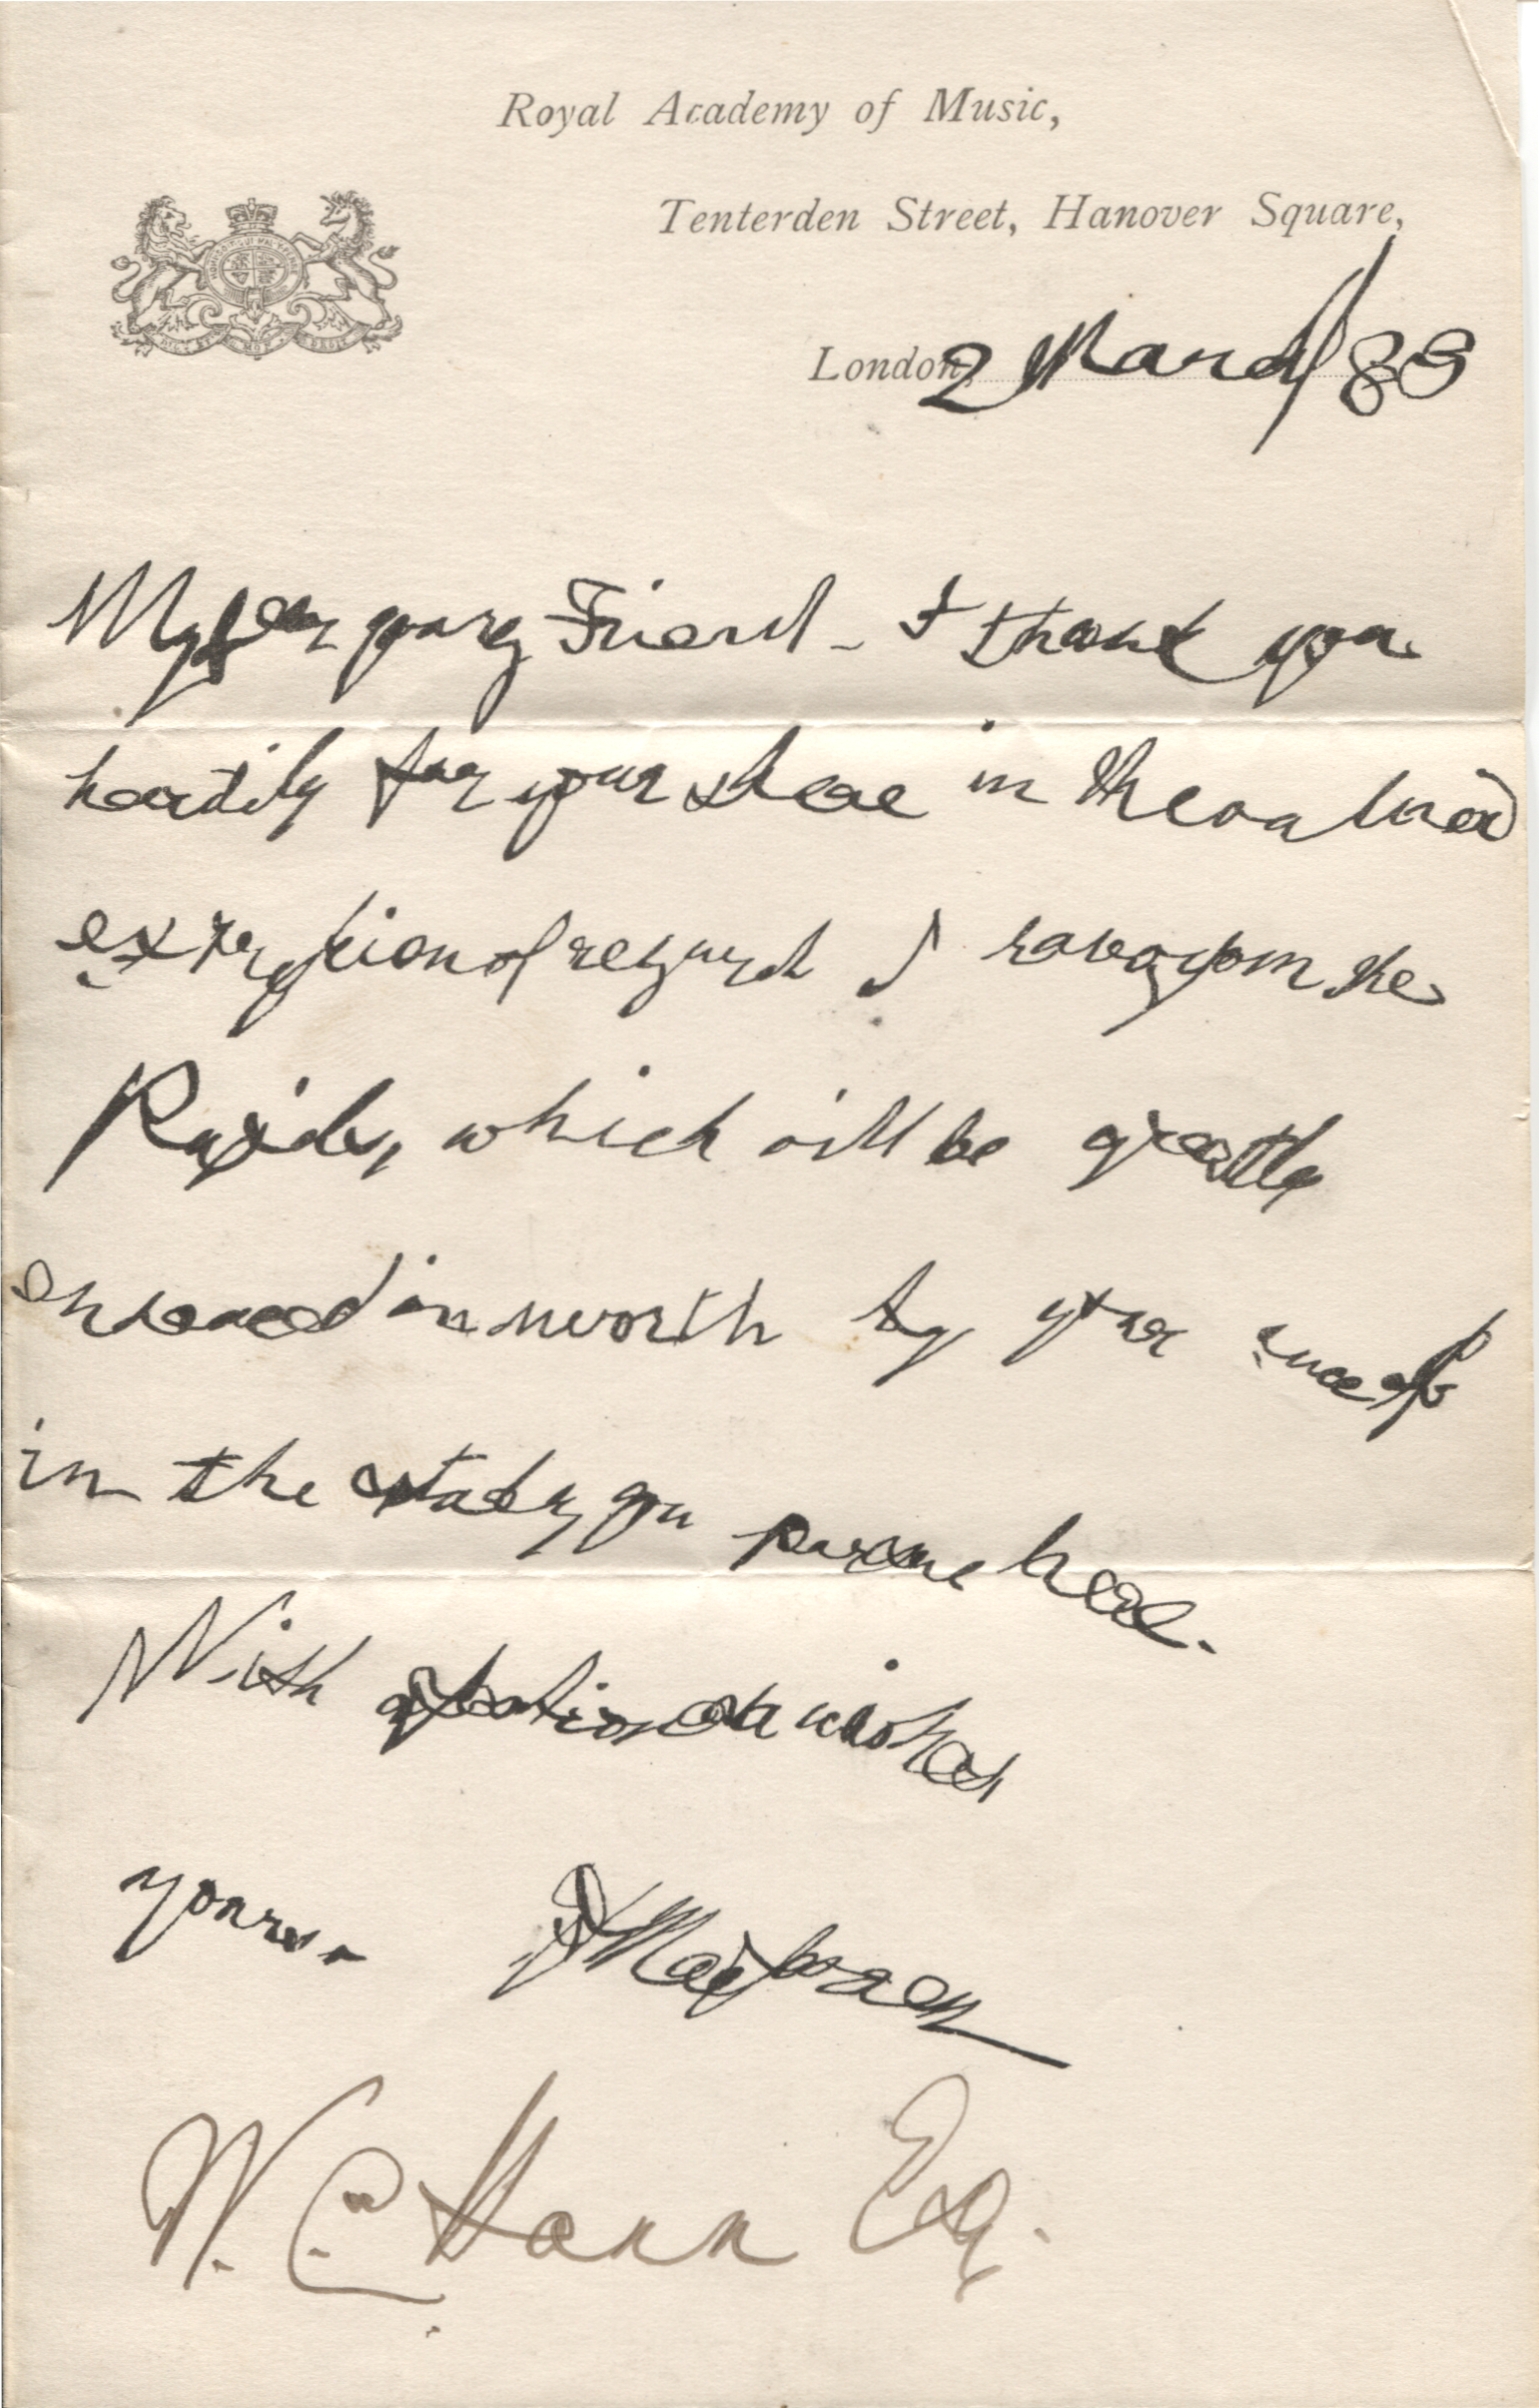 Royal Academy of Music,
Tenterden Street, Hanover Square,
London, 2 March/88
My dear young Friend - I thank you
heartily for your share in the valued
expression of regard I have from the
Pupils, which will be greatly
enhanced in worth by your success
in the study you pursue here.
With affectionate wishes
yours - GAMacfarren
W. C. Hann Esq.